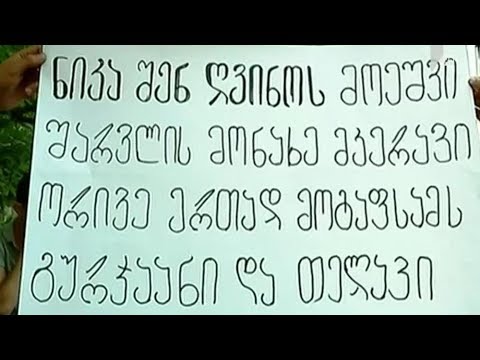 ნიკა შენ ღვინოს მოეშვი
შარვლის მონახე მკერავი
ორივე ერთად მოგაფსამს
გურჯაანი და თელავი